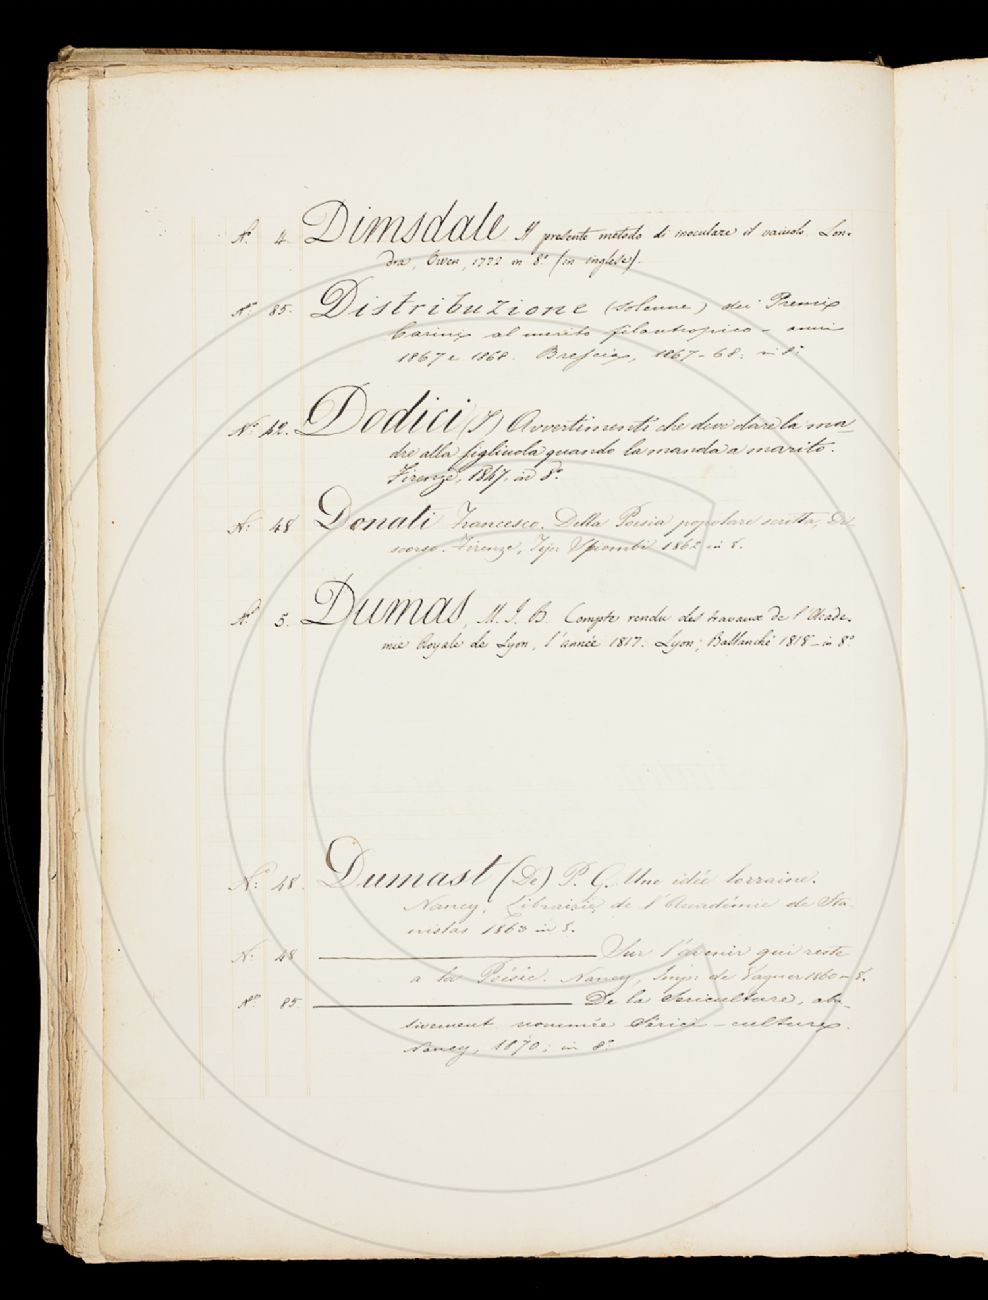 N.º 4. Dimsdale. Il presente metodo di inoculare il vaiuolo. Lon-
dra, Owen, 1772 in 8.º (in inglese).
N.º 85. Distribuzione (solenne) dei Premi
Carini al merito filantropico - anni
1867 e 1868. Brescia, 1867-68; in 8.º
N.º 42. Dodici (I) Avvertimenti che deve dare la ma-
dre alla figliuola quando la manda a marito.
Firenze, 1847, in 8.º
N.º 48 Donati Francesco. Della Poesia popolare scritta, Di-
scorso. Firenze, 1862 in 8.
N.º 5. Dumas, M. J. B. Compte rendu des travaux de l'Acade-
mie Royale de Lyon, l'année 1817. Lyon, Ballanché 1818 - in 8º
N.º 48. Dumast (De) P. G. Une idée lorraine.
Nancy, Librairie de l'Académie de Sta-
nislas 1863 in 8.
N.º 48 Sur l'avenir qui reste
a la Poésie. Nancy, Imp. de Vagner 1860 in 8.
N.º 85. De la Sericulture, abu-
sivement nommée Sérici-culture.
Nancy, 1870; in 8.º